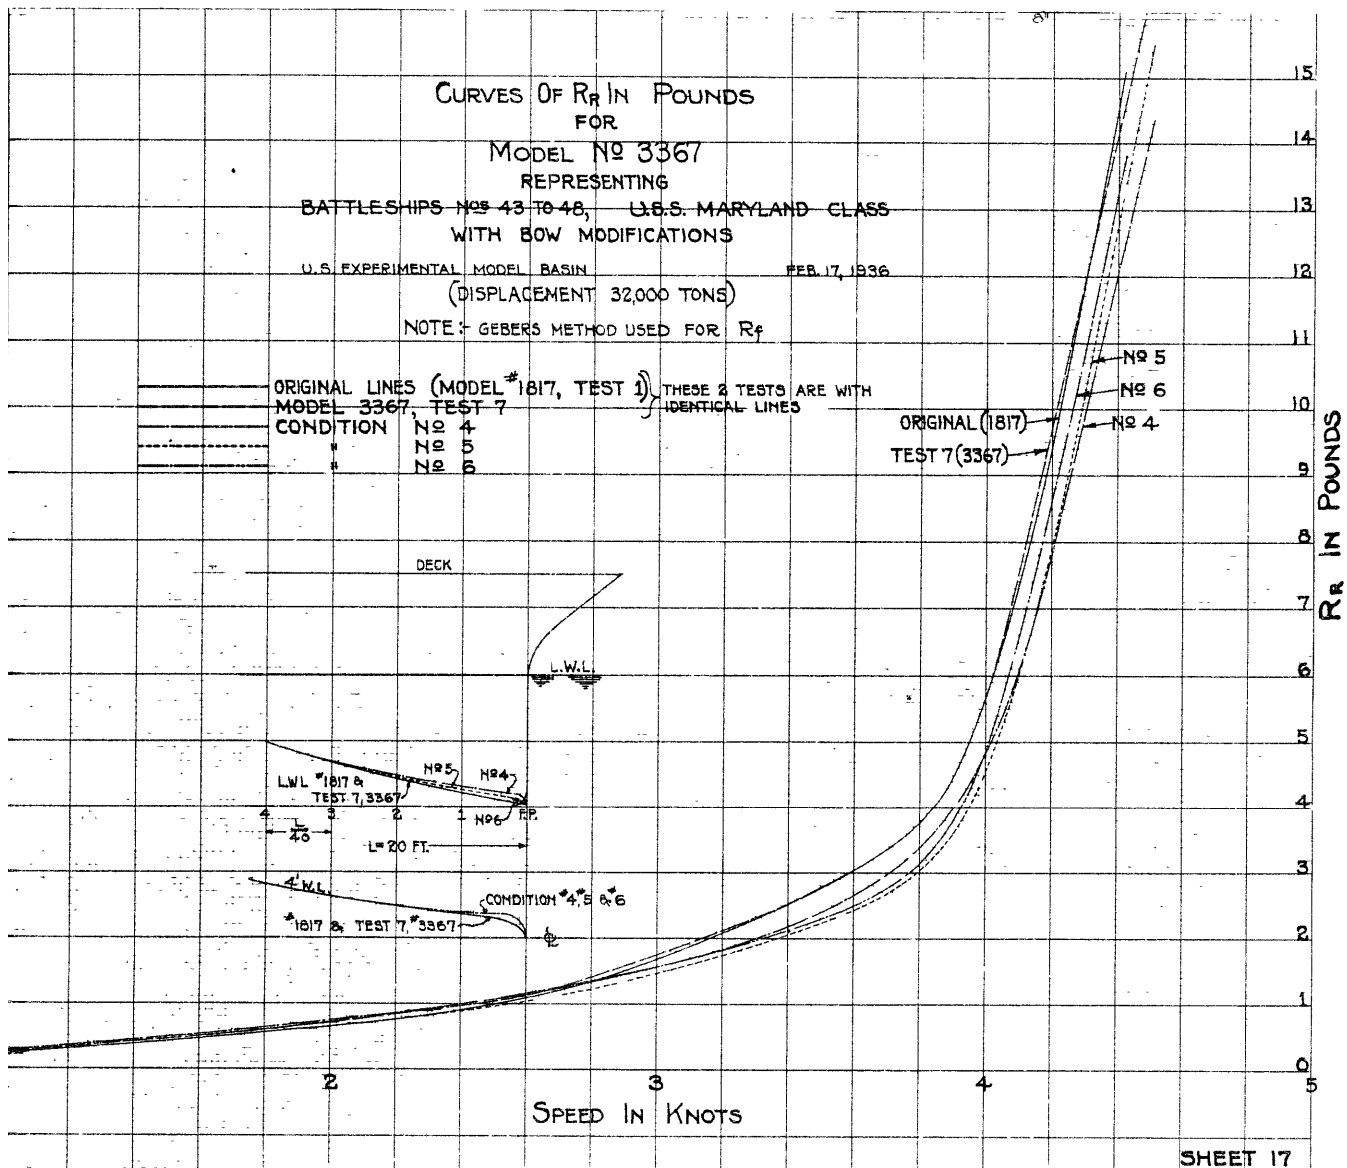 CURVES OF RR IN POUNDS
FOR
MODEL Nº 3367
REPRESENTING
BATTLESHIPS Nos 43 TO 48, U.S.S. MARYLAND CLASS
WITH BOW MODIFICATIONS
U.S. EXPERIMENTAL MODEL BASIN FEB. 17, 1936
(DISPLACEMENT 32,000 TONS)
NOTE:- GEBERS METHOD USED FOR Rf
ORIGINAL LINES (MODEL #1817, TEST 1)
MODEL 3367, TEST 7
THESE 2 TESTS ARE WITH
IDENTICAL LINES
CONDITION Nº 4
" Nº 5
" Nº 6
Nº 5
Nº 6
Nº 4
ORIGINAL (1817)
TEST 7 (3367)
DECK
L.W.L.
Nº5
Nº4
L.W.L #1817 &
TEST 7, 3367
Nº6
4 3 2 1 F.P.
L
40
L= 20 FT.
4' W.L.
CONDITION #4, #5 & #6
#1817 & TEST 7, #3367
℄
15
14
13
12
11
10
9
8
7
6
5
4
3
2
1
0
RR IN POUNDS
2 3 4 5
SPEED IN KNOTS
SHEET 17